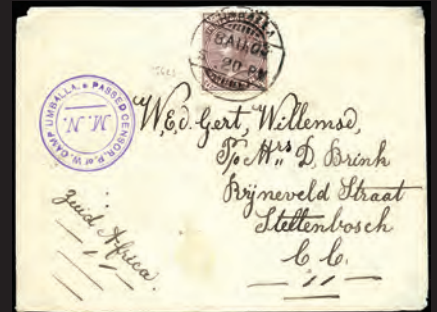 UMBALLA
20 PM
PASSED CENSOR. P. of W. CAMP UMBALLA.
M. N.
Wed. Gert, Willemse,
P/o Mrs D, Brink
Rijneveld Straat
Stellenbosch
C C.
Zuid Africa.